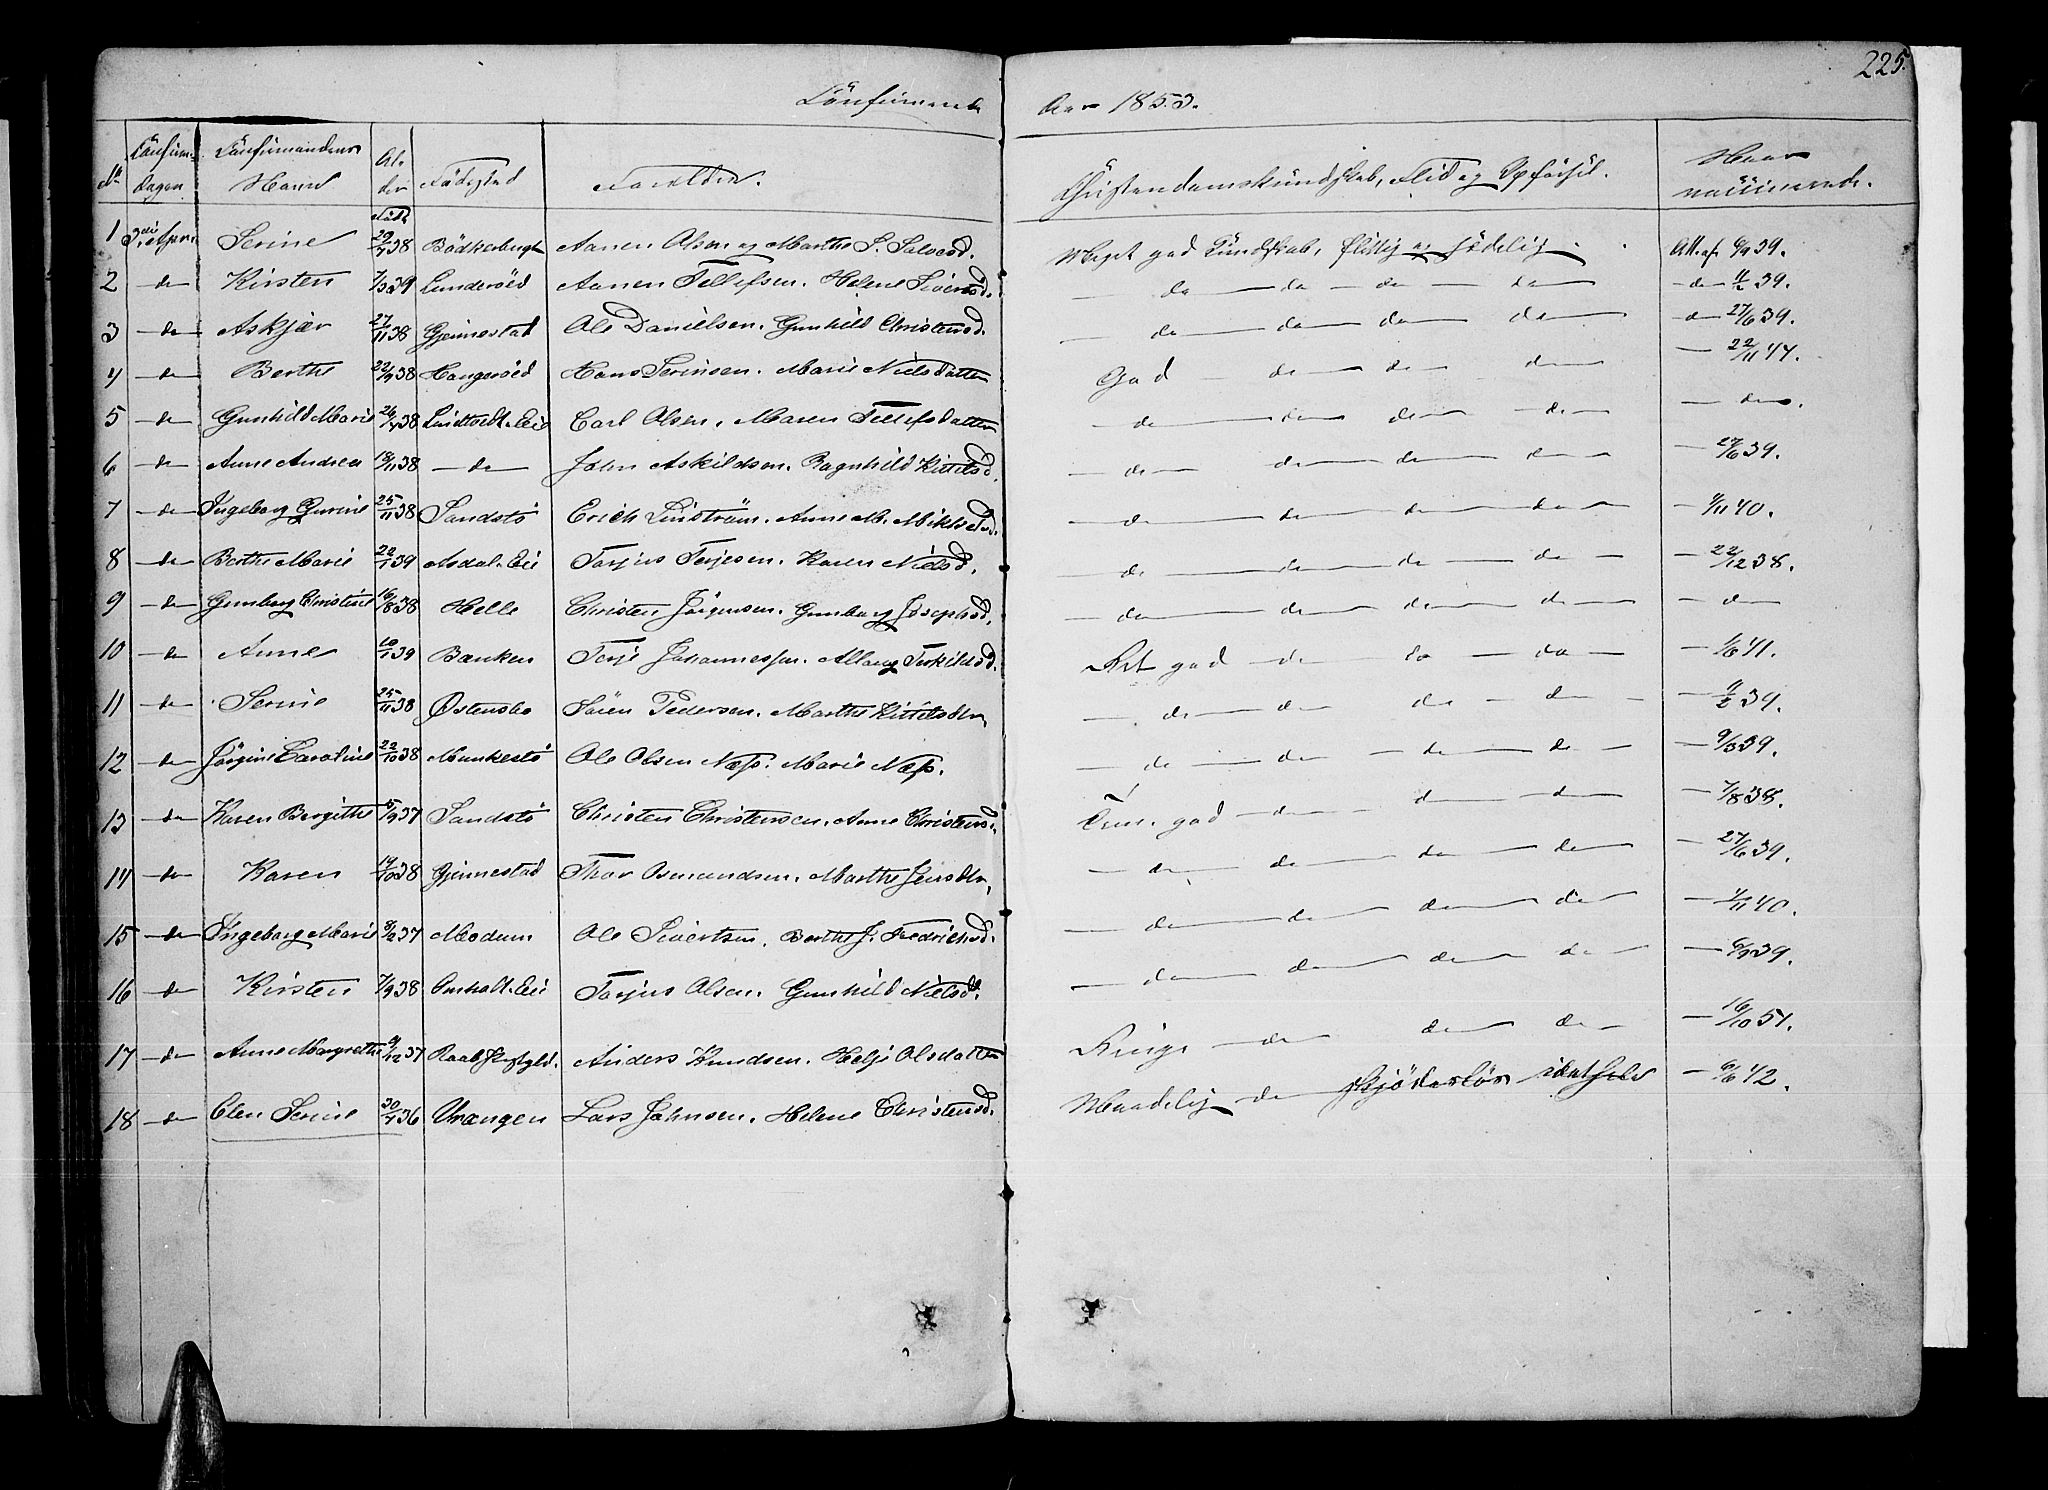 225.
Confirmerede Aar 1853.
No Confirm. dagen Confirmandens Navne Al. der Födested Forældre. Christendomskundskab, Flid og Opförsel. Naar vaccinerede.
1 3die April Serine Född 29/4 38 Bödkerbugt Aanen Olsen og Marthe S. Salvesd. Meget god Kundskab, flittig og sædelig. Att. af 6/9 39.
2 do Kirsten 7/3 39 Lunderöed Aanen Tellefsen. Helene Siversd. do do do do do 11/2 39.
3 do Askjær 27/11 38 Gjennestad Ole Danielsen. Gunhild Christensd. do do do do do 27/6 39.
4 do Berthe 22/9 38 Haugeröed Hans Sörinsen. Marie Nielsdatter God do do do 22/11 47.
5 do Gunhild Marie 26/4 38 Lindtvedt. Eie Carl Olsen. Maren Tellefsdatter do do do do do.
6 do Anne Andrea 18/11 38 do John Askildsen. Ragnhild Kittelsd. do do do do 27/6 39.
7 do Ingeborg Gurine 25/11 38 Sandstö Erich Linström. Anne M. do do do do 9/11 40.
8 do Berthe Marie 22/1 39 Asdal. Eie Torjus Terjesen. Karen Nielsd. do do do do 22/12 38.
9 do Gunborg Christine 16/8 38 Helle Christen Jörgensen. Gunborg Josephsd. do do do do do
10 do Anne 10/1 39 Banken Terje Johannessen. Alborg Terkildsd. Ret god do do do 1/6 41.
11 do Serine 25/11 38 Östensbo Sören Pedersen. Marthe Kittelsdtr. do do do do 11/2 39.
12 do Jörgine Caroline 22/10 38 Munkestö Ole Olsen Næss. Marie Næss. do do do do 9/3 39.
13 do Karen Birgithe 5/9 37 Sandstö Christen Christensen. Anne Christensd. Tem. god do do do 7/8 38.
14 do Karen 14/10 38 Gjennestad Thor Osmundsen. Marthe Jensdtr. do do do do 27/6 39.
15 do Ingeborg Marie 9/2 37 Modum Ole Sivertsen. Berthe J. Fredrichsd. do do do do 1/11 40.
16 do Kirsten 7/9 38 Omholt. Eie Torjus Olsen. Gunhild Nielsd. do do do do 6/9 39.
17 do Anne Margrethe 9/12 37 Anders Knudsen. Helje Olsdatter Ringe do do do 16/10 51.
18 do Elen Serine 30/4 36 Vrængen Lars Johnsen. Helene Christensd. Maadelig do skjödeslös 6/6 42.